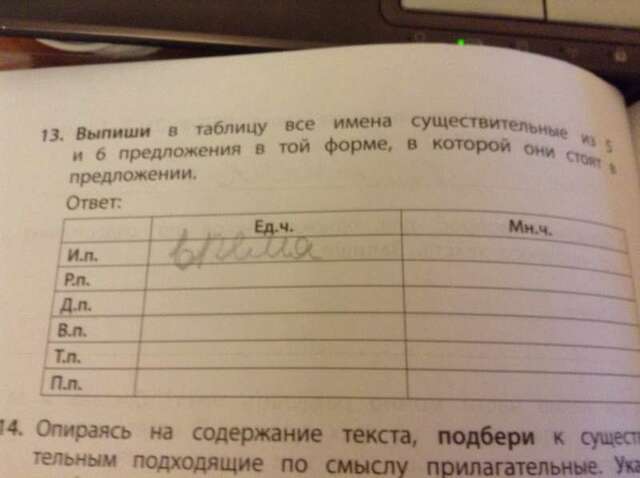 13. Выпиши в таблицу все имена существительные из 5
и 6 предложения в той форме, в которой они стоят в
предложении.
Ответ:
Ед.ч. Мн.ч.
И.п. время
Р.п.
Д.п.
В.п.
Т.п.
П.п.
14. Опираясь на содержание текста, подбери к сущест
тельным подходящие по смыслу прилагательные. Ука